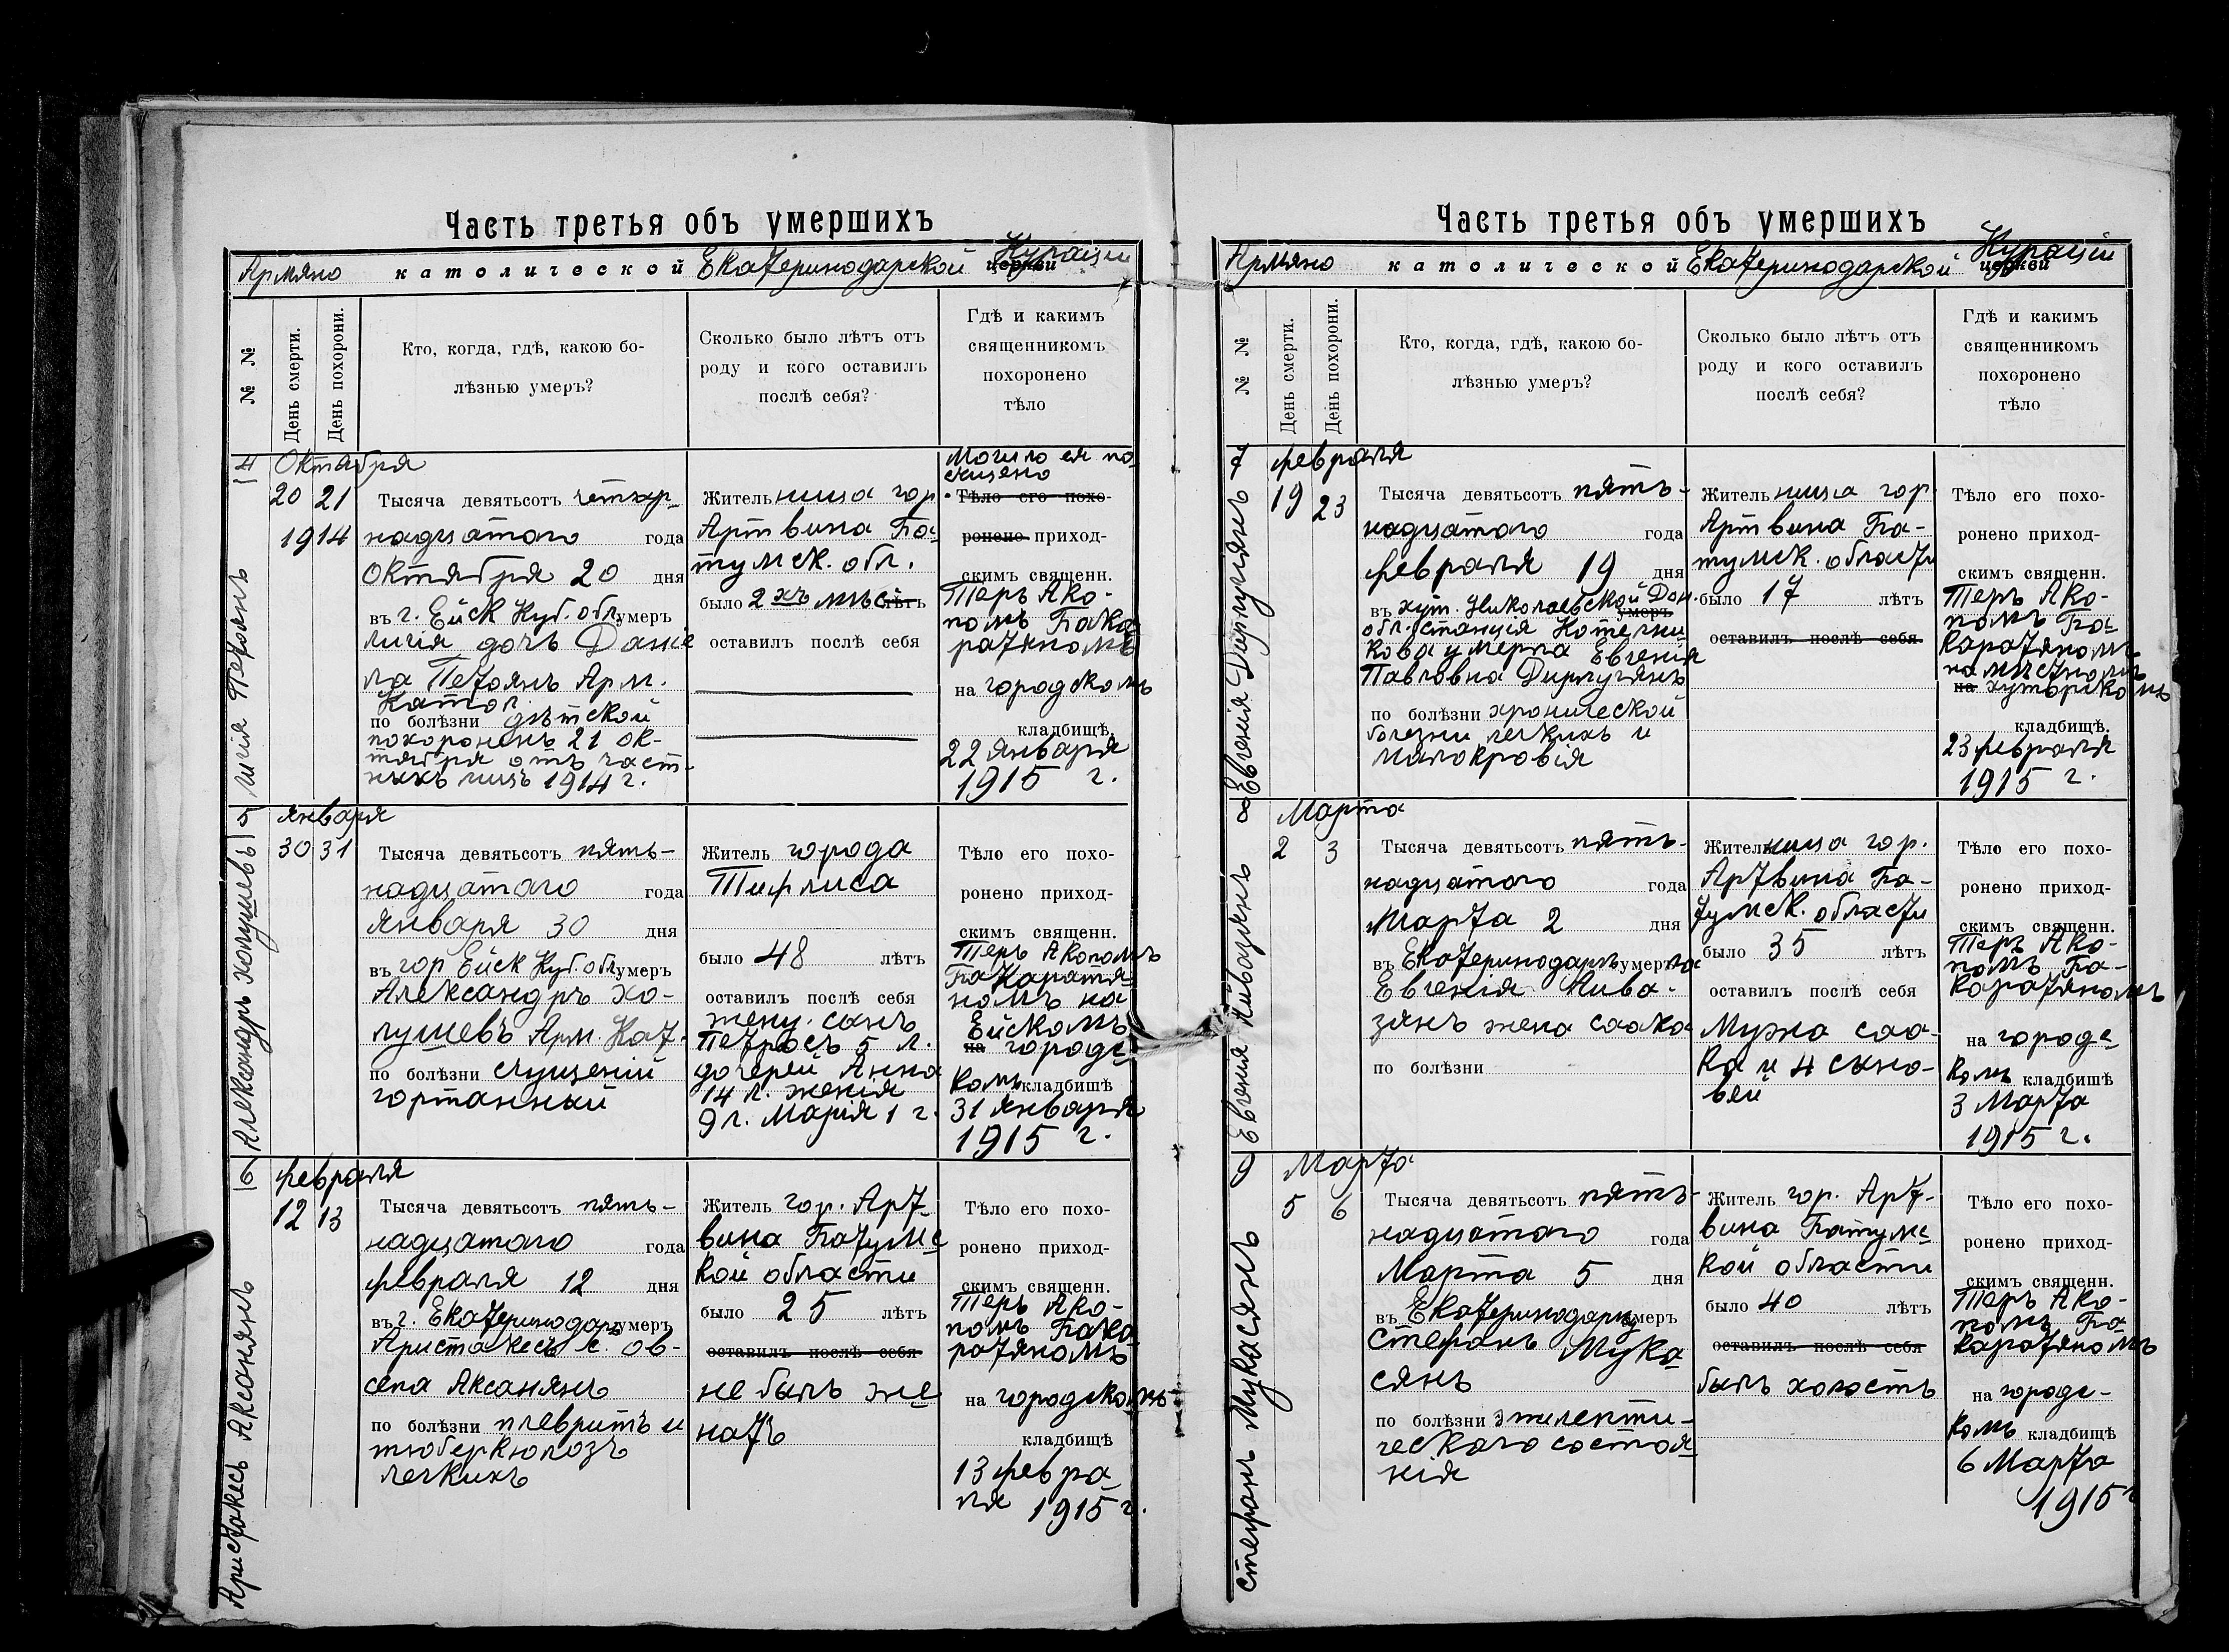 Часть третья объ умершихъ
Армяно католической Екатеринодарской церкви Курации
№ №
День смерти.
День похорони.
Кто, когда, гдѣ, какою бо-
лѣзнью умеръ?
Сколько было лѣтъ отъ
роду и кого оставилъ
послѣ себя?
Гдѣ и какимъ
священникомъ
похоронено
тѣло
4
Лигія Петоянъ
Октября
20 21
1914
Тысяча девятьсотъ четыр-
надцатого года
Октября 20 дня
въ г. Ейск Куб. обл. умеръ
лигія дочъ Даніе
ла Петоянъ Арм.
Катол.
по болѣзни дѣтской
похороненъ 21 ок-
тября отъ част-
ныхъ лицъ 1914 г.
Жительница гор
Артвина Ба-
тумск. обл.
было 2хъ мѣс лѣтъ
оставилъ послѣ себя
Могило ея по
сищено
Тѣло его похо-
ронено приход-
скимъ священн.
Теръ Ако-
помъ Бака
ратяномъ
на городскомъ
кладбищѣ.
22 Января
1915 г.
5
Александръ холушевъ
Января
30 31
Тысяча девятьсотъ пять-
надцатого года
Января 30 дня
въ гор Ейск Куб. обл умеръ
Александръ хо-
лушевъ Арм. Кат.
по болѣзни сгущеній
гортанный
Житель города
Тифлиса
было 48 лѣтъ
оставилъ послѣ себя
жену. сынъ
Петросъ 5 л.
дочерей Анна
14 л. женія
9 л. Марія 1 г.
Тѣло его похо-
ронено приход-
скимъ священн.
Теръ Акопомъ
Бакаратя-
номъ на
Ейскомъ
на городс
комъ кладбищѣ
31 января
1915 г.
6
Аристакесъ Аксанянъ
февраля
12 13
Тысяча девятьсотъ пять-
надцатого года
февраля 12 дня
въ г. Екатеринодаръ умеръ
Аристакесъ с. ов-
сепа Аксанянъ
по болѣзни плевритъ и
тюберкюлозъ
легкихъ
Житель гор. Арт-
вина Батумс
кой области
было 25 лѣтъ
оставилъ послѣ себя
не былъ же
натъ
Тѣло его похо-
ронено приход-
скимъ священн.
Теръ Ако-
помъ Бака
ратяномъ
на городскомъ
кладбищѣ
13 февра
ля 1915 г.
Часть третья объ умершихъ
Армяно католической Екатеринодарской церкви Курации
№ №
День смерти.
День похорони.
Кто, когда, гдѣ, какою бо-
лѣзнью умеръ?
Сколько было лѣтъ отъ
роду и кого оставилъ
послѣ себя?
Гдѣ и какимъ
священникомъ
похоронено
тѣло
7
Евгенія Дирлугянъ
февраля
19 23
Тысяча девятьсотъ пять-
надцатого года
февраля 19 дня
въ хут. Николаевской Дон. умеръ
обл. станція Котельни
кова умерла Евгенія
Павловна Дирлугянъ
по болѣзни хронической
болезни легкихъ и
малокровія
Жительница гор.
Артвина Ба-
тумск. области
было 17 лѣтъ
оставилъ послѣ себя
Тѣло его похо-
ронено приход-
скимъ священн.
Теръ Ако-
помъ Ба-
каратяномъ
на мѣстномъ
на хуторскомъ
кладбищѣ.
23 февраля
1915 г.
8
Евгенія Айвазянъ
Марта
2 3
Тысяча девятьсотъ пять-
надцатого года
Марта 2 дня
въ Екатеринодаръ умерла
Евгенія Айва-
зянъ жена саака
по болѣзни
Жительница гор.
Артвина Ба-
тумск. области
было 35 лѣтъ
оставилъ послѣ себя
Мужа саа-
ка и 4 сыно-
вей
Тѣло его похо-
ронено приход-
скимъ священн.
Теръ Ако-
помъ Ба-
каратяномъ
на городс
комъ кладбищѣ
3 Марта
1915 г.
9
стефанъ Мукасянъ
Марта
5 6
Тысяча девятьсотъ пять-
надцатого года
Марта 5 дня
въ Екатеринодару умеръ
стефанъ Мука
сянъ
по болѣзни эпилепти-
ческого состоя
нія
Житель гор. Арт-
вина Батумс
кой области
было 40 лѣтъ
оставилъ послѣ себя
былъ холостъ
Тѣло его похо-
ронено приход-
скимъ священн.
Теръ Ако-
помъ Ба
каратяномъ
на городс-
комъ кладбищѣ
6 Марта
1915 г